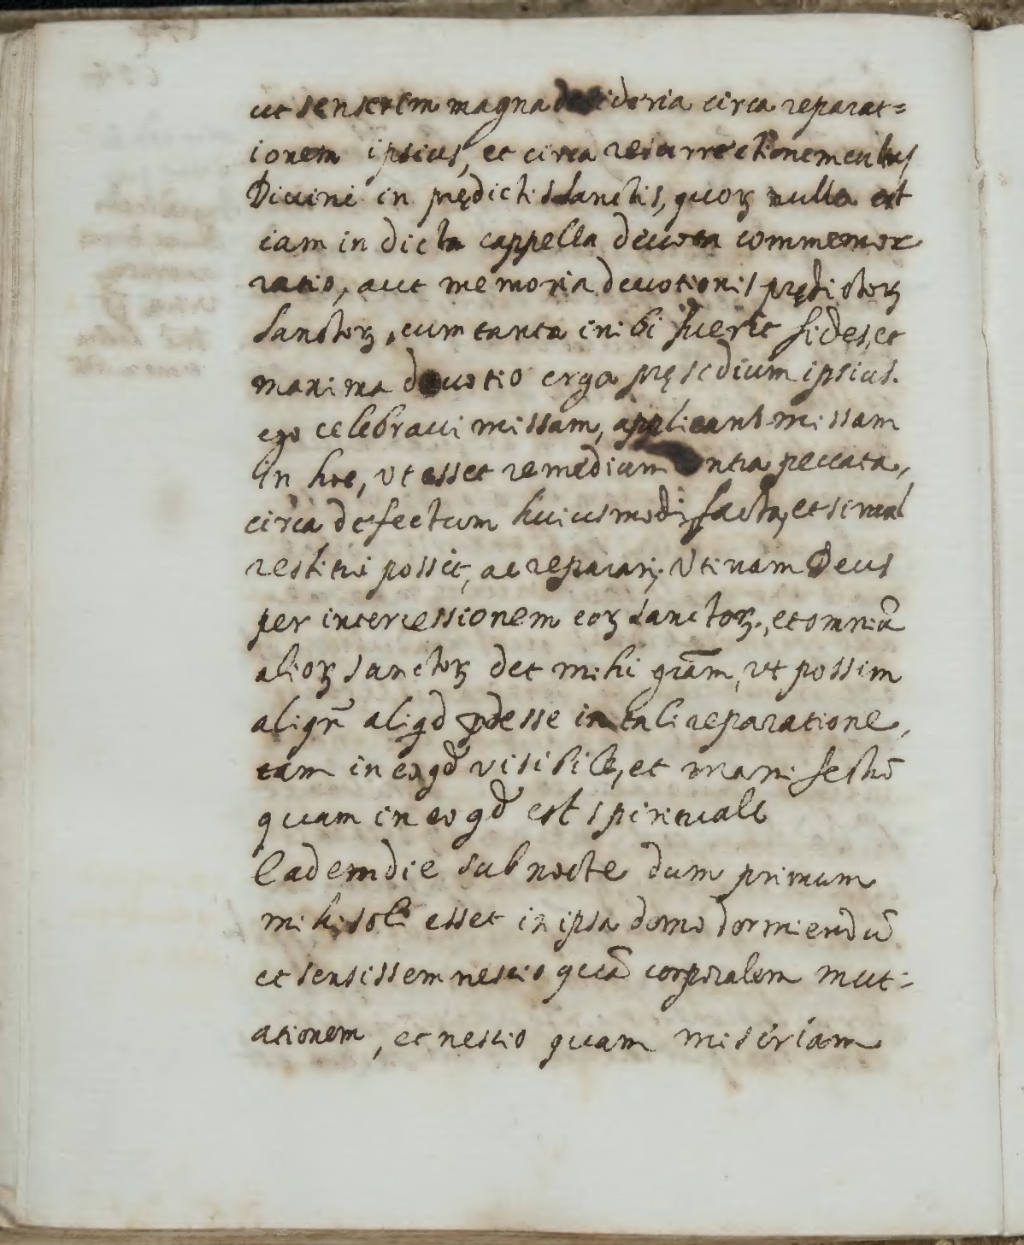 ut senserem magna desideria circa reparat=
ionem ipsius, et circa resurrectionem cultus
Divini in prędictis Sanctis, quoꝝ nulla est
iam in dicta cappella devota commemor
ratio, aut memoria devotionis prędictoꝝ
Sanctoꝝ, cum tanta inibi fuerit fides, et
maxima devotio erga pręsedium ipsius.
ego celebravi missam, applicans missam
In hoc, ut esset remedium contra peccata,
circa defectum huiusmodi facta, et simul
restitui possit, ac reparari, Utinam Deus
per intercessionem eoꝝ Sanctoꝝ, et omniũ
alioꝝ sanctoꝝ det mihi grãm, ut possim
aliqñ aliqd ꝓdesse in tali reparatione,
tam in eo qd visibile, et manifestũ
quam in eo qd est spirituale
Eadem die sub nocte dum primum
mihi soli esset in ipsa domo dormiendũ
et sensissem nescio quã corporalem mut=
ationem, et nescio quam miseriam